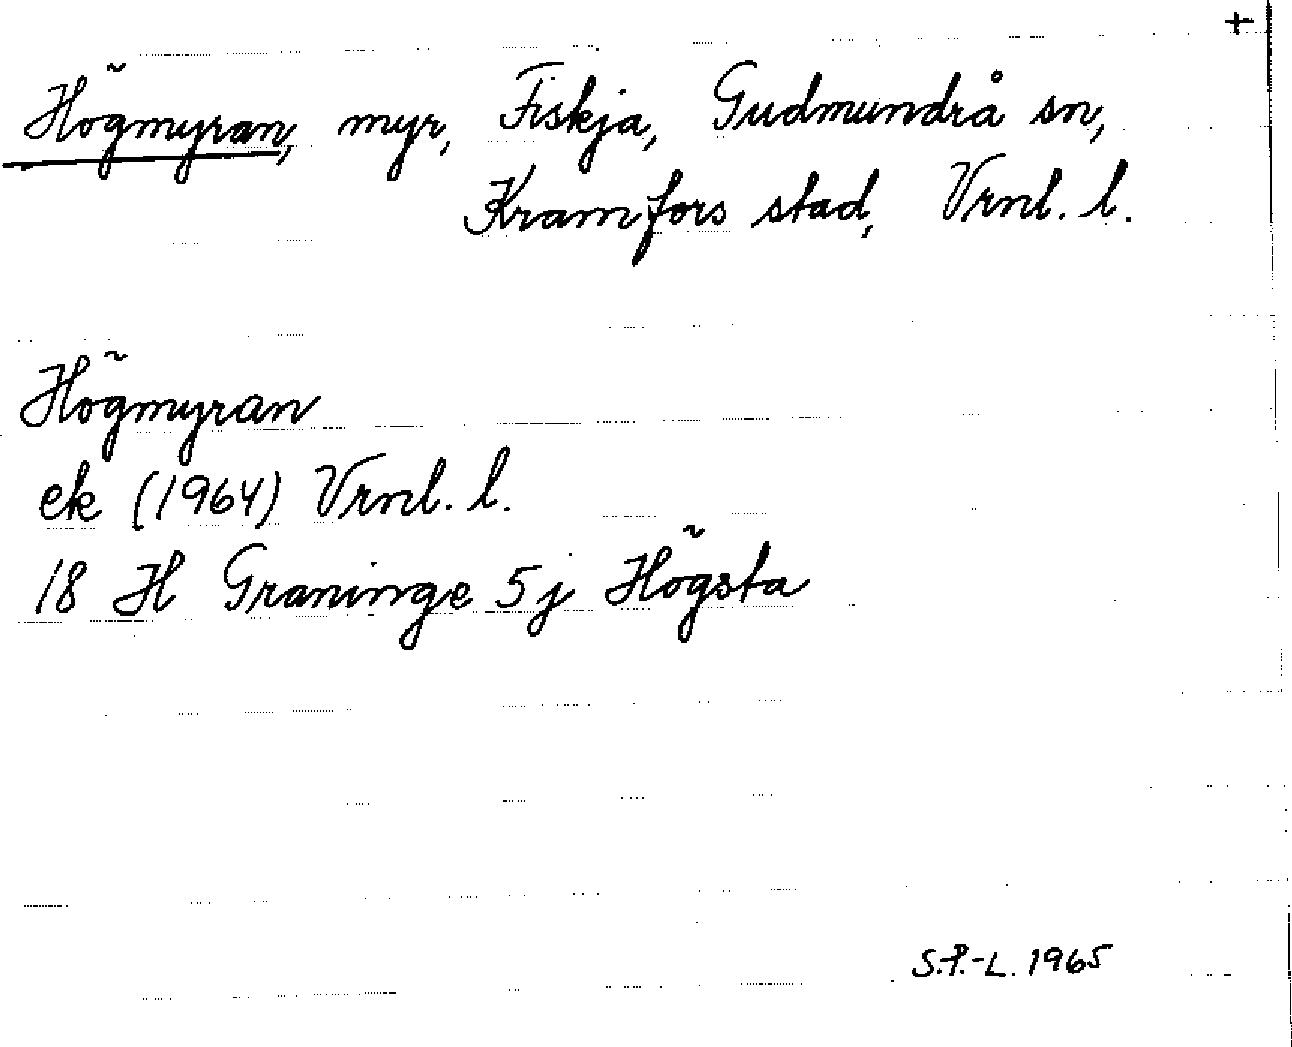 +
Högmyran, myr, Fiskja, Gudmundrå sn,
Kramfors stad, Vrnl. l.
Högmyran
ek (1964) Vrnl. l.
18 H Graninge 5j Högsta
S.P.-L. 1965